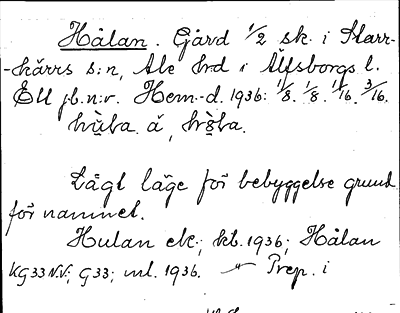 Hålan. Gård 1/2 sk. i Starr-
-kärrs s:n, Ale hrd i Älfsborgs l.
Ett jb.n:r. Hem.-d. 1936: 1/8. 1/8. 1/16. 3/16.
hùla. å,
Lågt läge för bebyggelse grund
för namnet.
Hulan etc.; kb. 1936; Hålan
KG33 N.V.; G33; ml. 1936. Prep. i